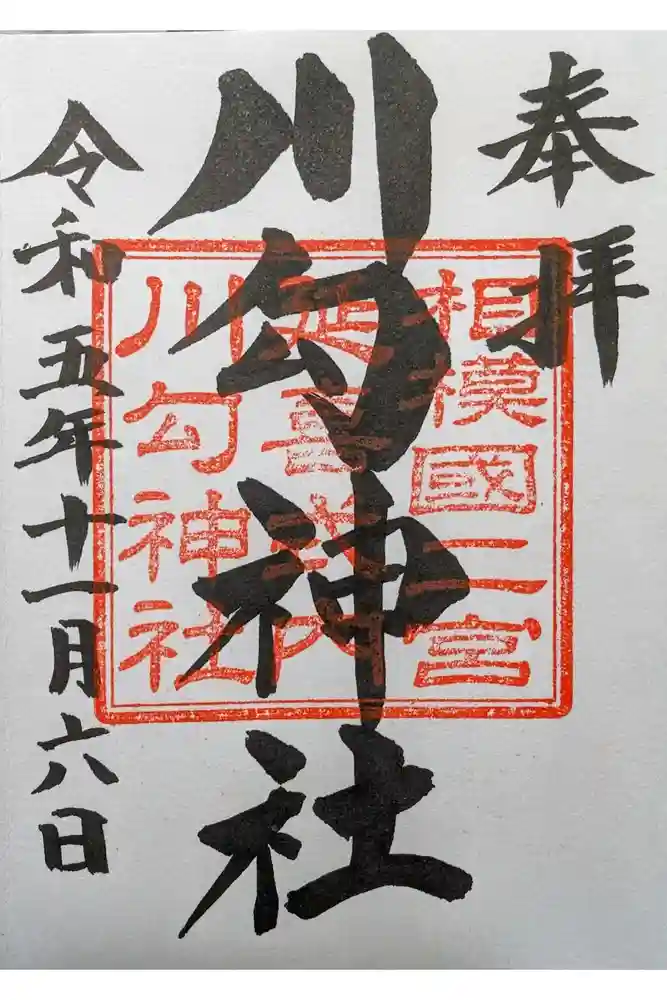 奉拝
川勾神社
相模國二宮
延喜式内
川勾神社
令和五年十一月六日